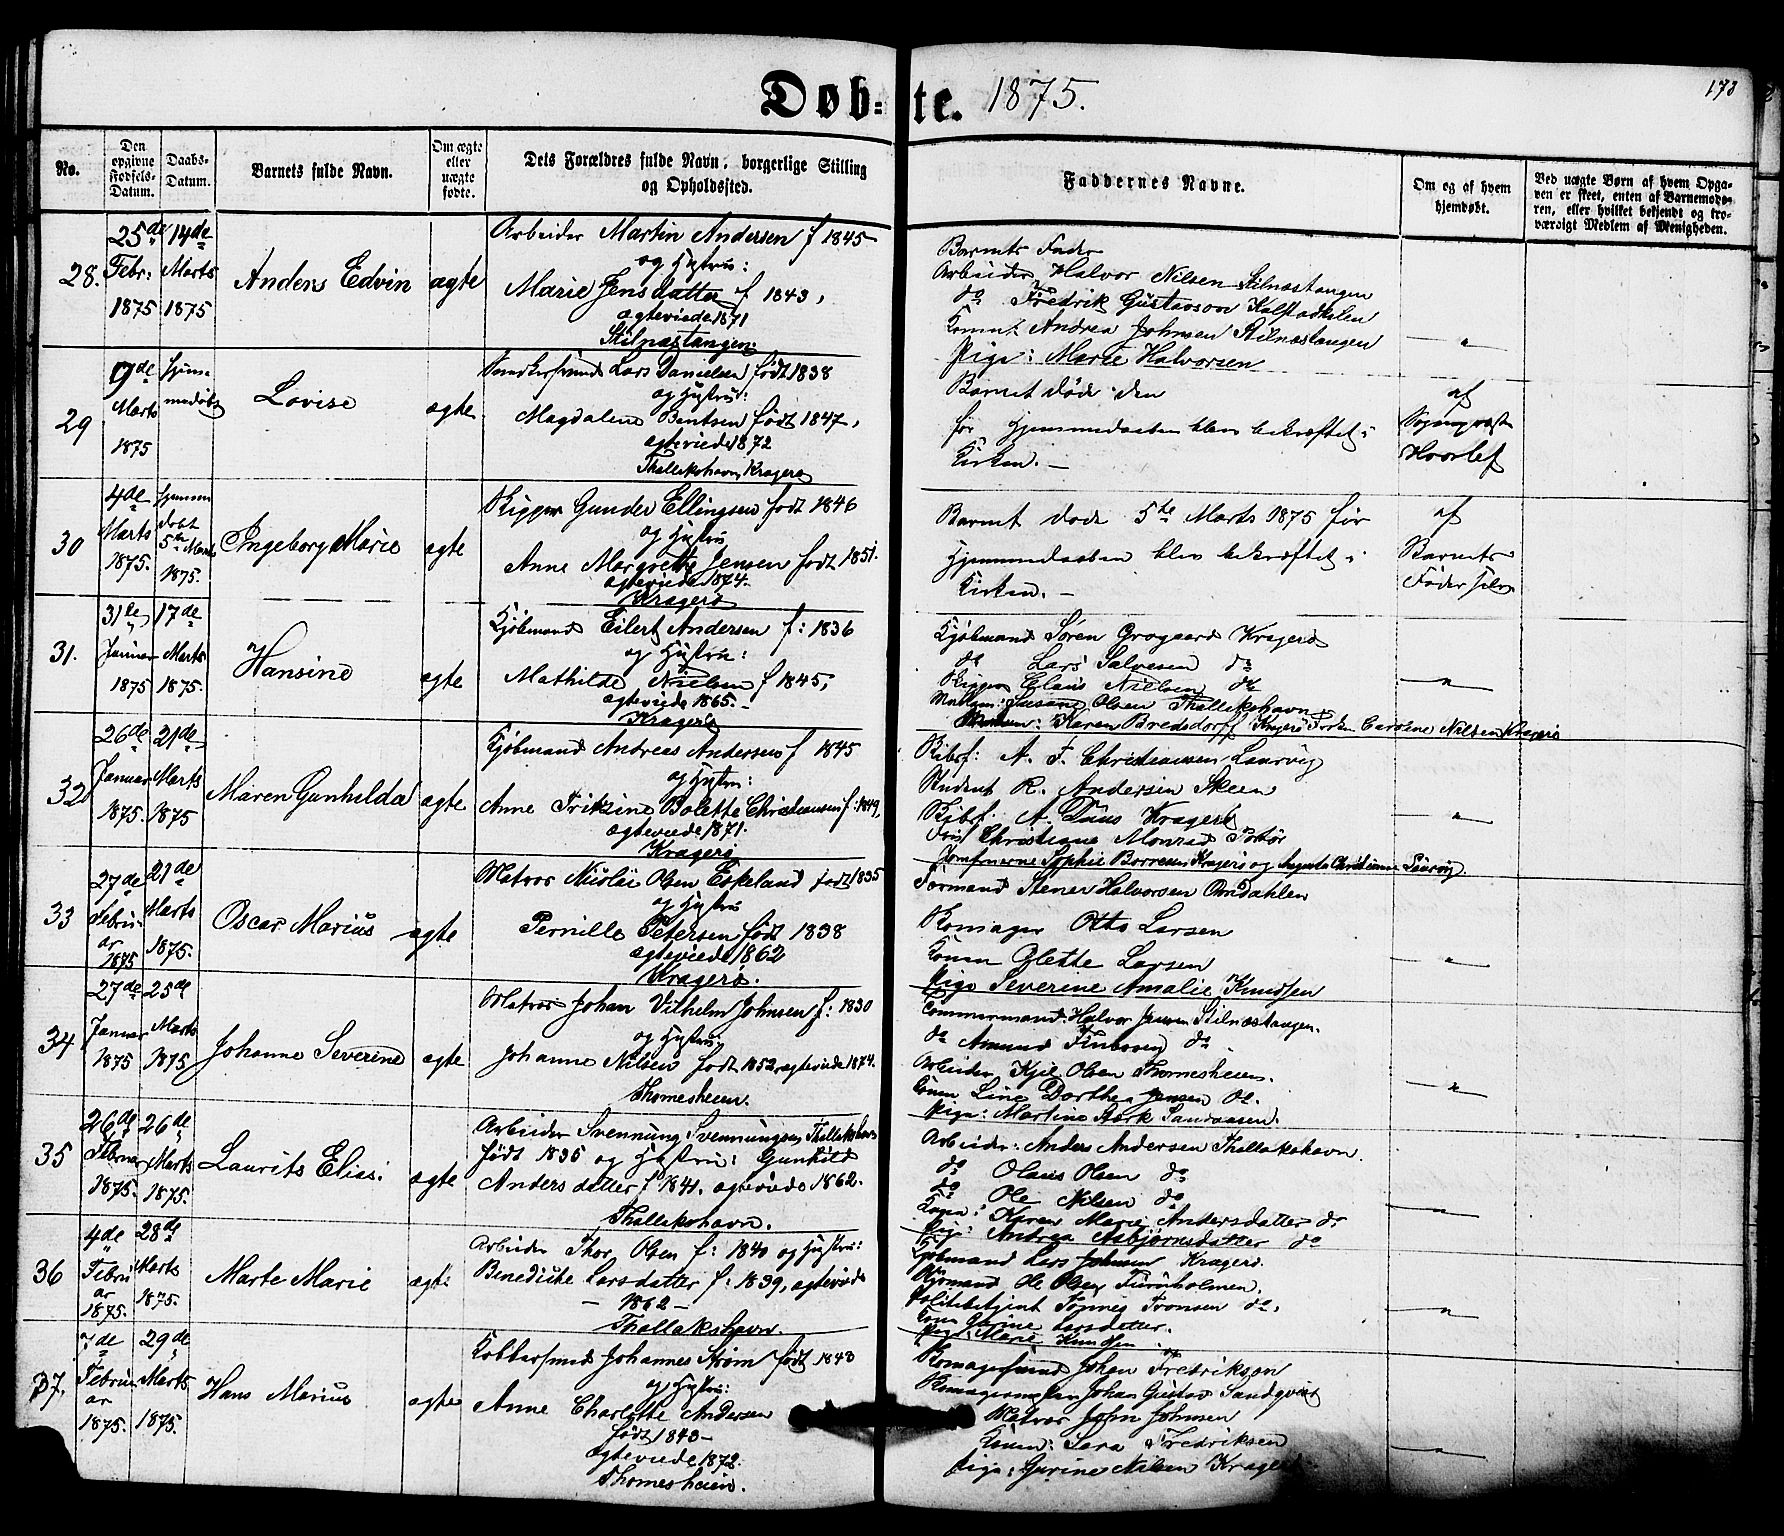 Døb= te. 1875.
173
No.
Den opgivne Fødsels-Datum.
Daabs-Datum.
Barnets fulde Navn.
Om ægte eller uægte fødte.
Dets Forældres fulde Navn, borgerlige Stilling og Opholdssted.
Faddernes Navne.
Om og af hvem hjemdøbt.
Ved uægte Børn af hvem Opgaven er skeet, enten af Barnemoderen, eller hvilket bekjendt og troværdigt Medlem af Menigheden.
28.
25de Febr: 1875
14de Marts 1875
Anders Edvin
ægte
Arbeider Martin Andersen f 1845
og Hustru:
Marie Jensdatter f 1843,
ægteviede 1871
Stilnæstangen.
Barnets Fader
Arbeider Halvor Nilsen Stilnæstangen
do Fredrik Gustavson Kalstadkilen
Konen Andrea Johnsen Stilnæstangen
Pige: Marie Halvorsen
29
9de Marts 1875
hjemmedøbt
Lovise
ægte
Snedkersvend Lars Danielsen født 1838
og Hustru:
Magdalene Bentsen født 1847,
ægteviede 1872
Thallakshavn, Kragerø
Barnet døde den
før Hjemmedaaben blev bekræftet i
Kirken. —
af
Sognepræst
30
4de Marts 1875.
Hjemmedøbt 5te Marts 1875.
Ingeborg Marie
ægte
Rigger Gunder Ellingsen født 1846
og Hustru
Anne Margrethe Jensen født 1851.
ægteviede 1874.
Kragerø
Barnet døde 5te Marts 1875 før
Hjemmedaaben blev bekræftet i
Kirken. —
af
Barnets
Fader selv
31.
31te Januar 1875
17de Marts 1875.
Hansine
ægte
Kjøbmand Eilert Andersen f: 1836
og Hustru:
Mathilde Nielsen f 1845,
ægteviede 1865. —
Kragerø
Kjøbmand Søren Grogaard Kragerø
do Lars Salvesen do
Rigger Claus Nielsen do
Madam: Susane Olsen Thallakshavn
Madam: Karen Bredsdorff Kragerø Frøken Caroline Nilsen Kragerø
32
26de Januar 1875.
21de Marts 1875
Maren Gunhilda
ægte
Kjøbmand Andreas Andersen f 1845
og Hustru:
Anne Frikine Bolette Christiansen f: 1849,
ægteviede 1871.
Kragerø
Skibsf: A. F. Christiansen Laurvig
Student R. Andersen Skeen
Skibsf. A. Duus Kragerø
Christiane Monrad
Jomfruerne Sophie Borresen Kragerø og Augusta Christianse Laurvig
33
27de Februar 1875
21de Marts 1875.
Oscar Marius
ægte
Matros Nicolai Olsen Eskeland født 1835
og Hustru
Pernille Petersen født 1838
ægteviede 1862
Kragerø.
Formand Stener Halvorsen Omdahlen
Komager Otto Larsen
Konen Olette Larsen
Pige Severine Amalie Knudsen
34
27de Januar 1875
25de Marts 1875
Johanne Severine
ægte
Matros Johan Vilhelm Johnsen f: 1830
og Hustru,
Johanne Nilsen født 1852, ægteviede 1874.
Thomesheien.
Tømmermand: Halvor Jensen Stilnæstangen.
do Amund do
Arbeider Kjel Olsen Thomesheien.
Konen Line Dorthea Jensen do.
Pige: Martine Sandaasen.
35
26de Februar 1875.
26de Marts 1875.
Laurits Elias.
ægte
Arbeider Svennung Svennungsen Thallakshavn
født 1835 og Hustru: Gunhild
Andersdatter f 1841. ægteviede 1862.
Thallakshavn.
Arbeider: Anders Andersen Thallakshavn.
do Olaus Olsen do
do Ole Nilsen do
Konen: Karen Marie Andersdatter do
Pige: Andrea Asbjørnsdatter do
36
4de Februar 1875.
28de Marts 1875.
Marte Marie
ægte
Arbeider Thor Olsen f: 1840 og Hustru:
Benedichte Larsdatter f: 1839, ægteviede
— 1862 —
Thallakshavn.
Kjøbmand Lars Johnsen Kragerø.
Ole Olsen Furuholmen.
Politibetjent Tønnes Tronsen do.
Kone Gurine Larsdatter.
Pige Marie Knudsen
37.
7de Februar 1875.
29de Marts 1875.
Hans Marius
ægte
Kobbersmed Johannes Strøm født 1843
og Hustru:
Anne Charlotte Andersen
født 1843 —
ægteviede 1872.
Thomesheien.
Komagersvend Johan Fredriksen
Komagermester Johan Gustav Sandqvist
Matros John Johnsen
Konen: Sara Fredriksen
Pige: Gurine Nilsen Kragerø